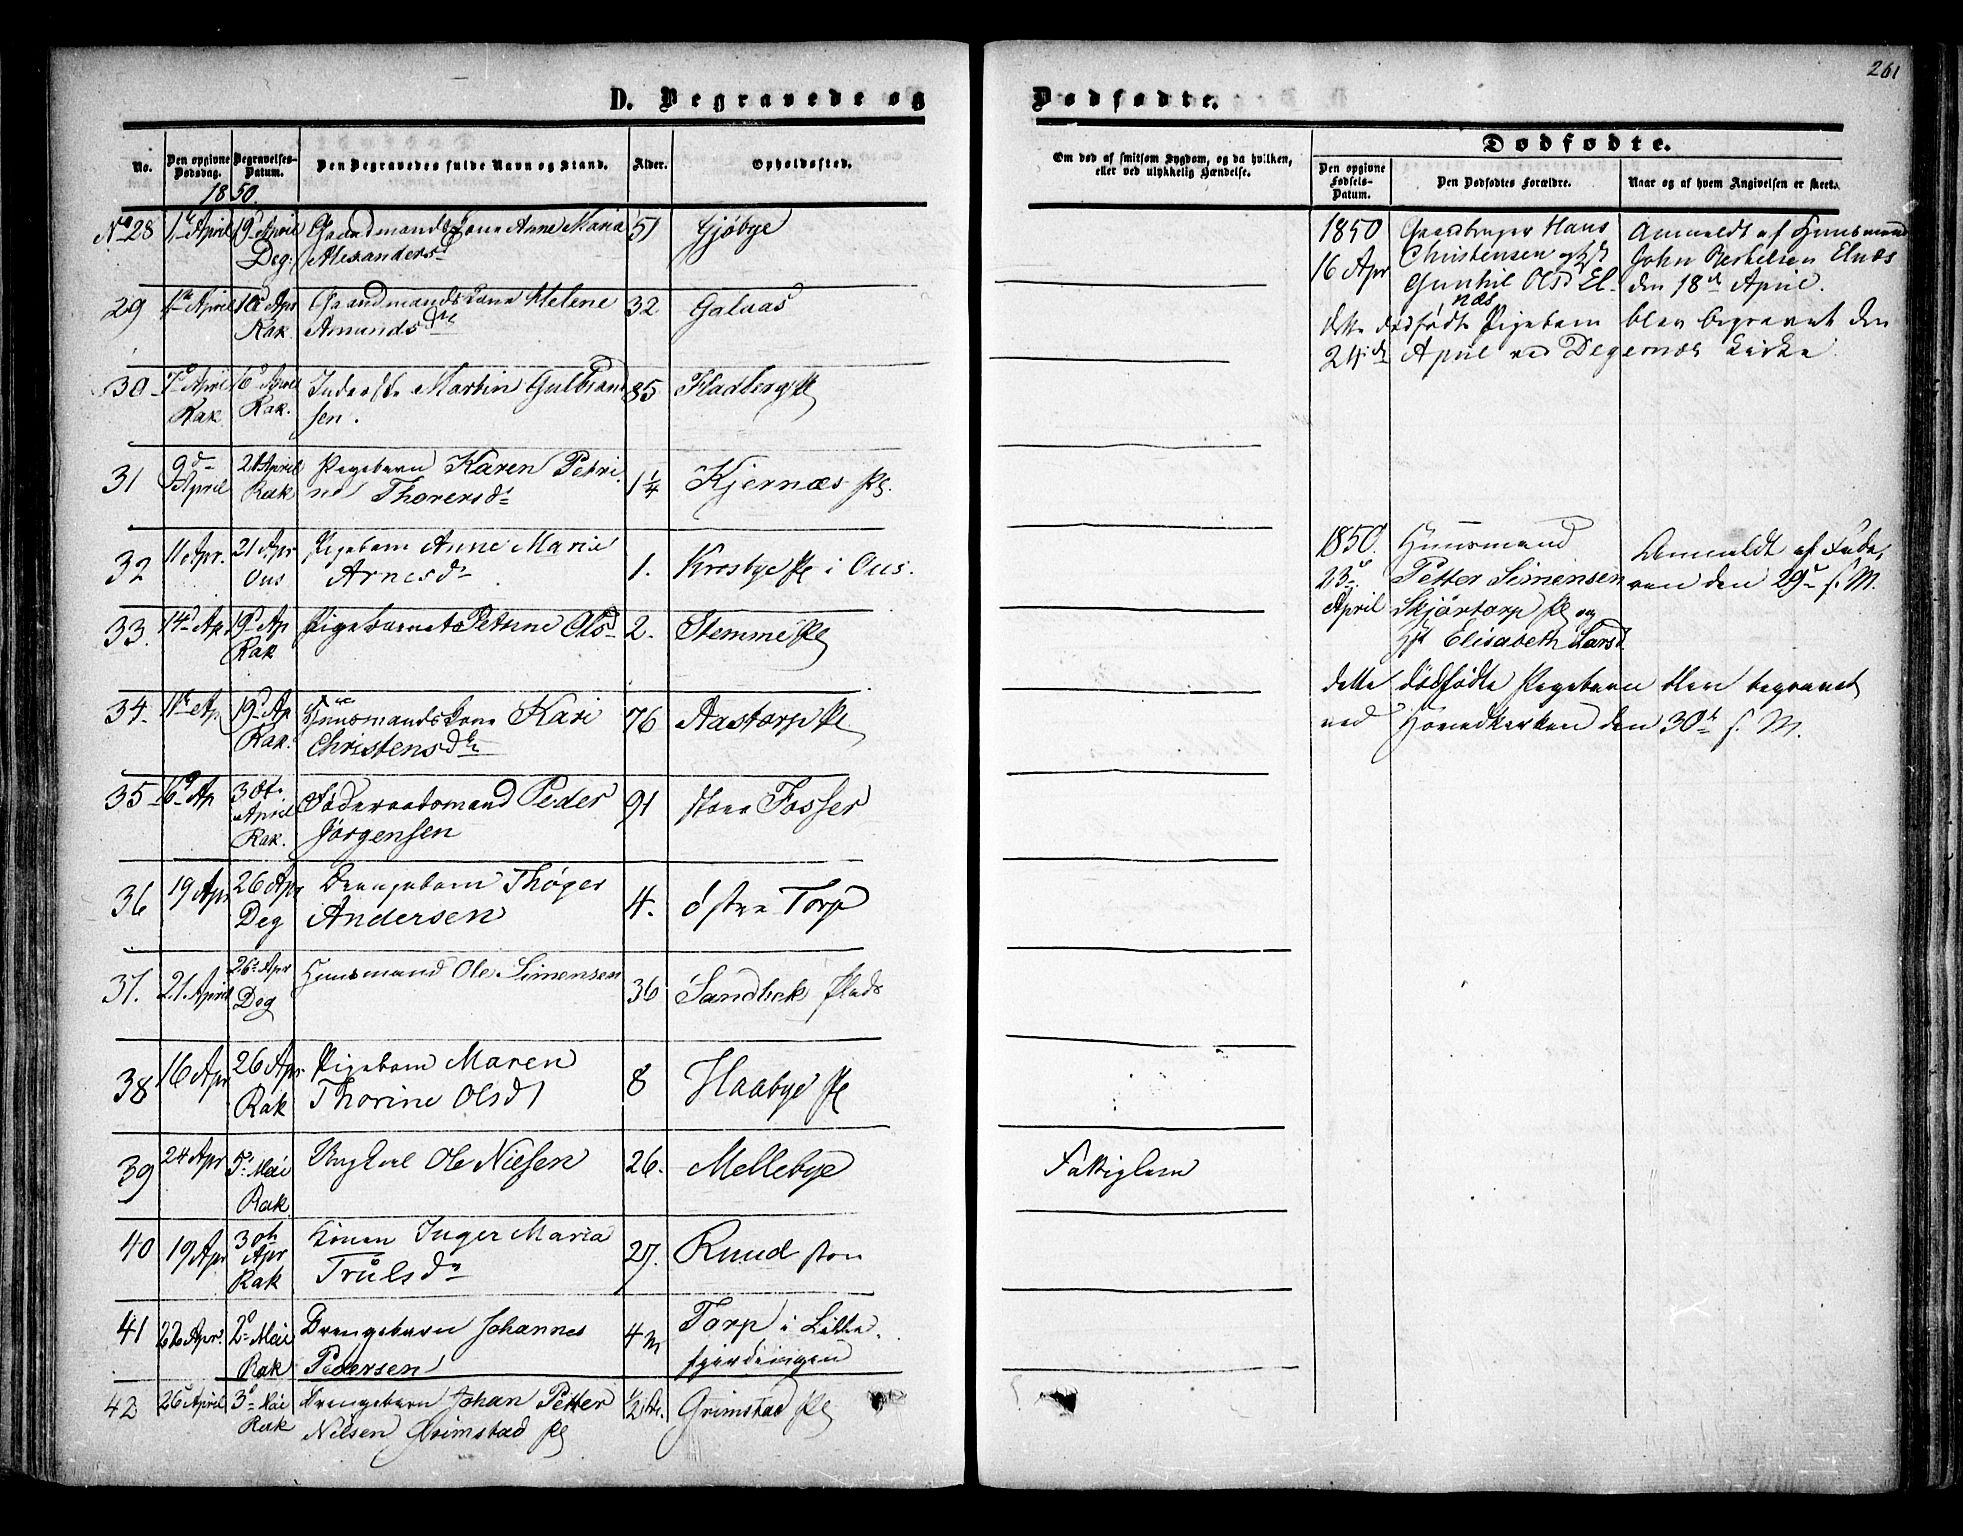 261
D. Begravede og
Dødfødte.
No.
Den opgivne Dødsdag.
Begravelses-Datum.
Den Begravedes fulde Navn og Stand.
Alder.
Opholdssted.
1850.
Om død af smitsom Sygdom, og da hvilken, eller ved ulykkelig Hændelse.
Dødfødte.
Den opgivne Fødsels-Datum.
Den Dødfødtes Forældre.
Naar og af hvem Angivelsen er skeet.
No 28 1 April 19 April Gaardmandskone Anne Maria 51 Gjøbye
Deg. Alexandersd
29 April Apr Gaardmandskone Helene 32
Rak Amundsd
30 7 April 16 April Inderste Martin Gulbrand 85 Fladberg Pl
Rak Rak. sen.
31 9d April 21 April Pigebarn Karen Petri 1 1/4 Kjernæs Pl.
Rak ne Thorersd
32 11 Apr. 21 Apr Pigebarn Anne Marie 1. Krosbye Pl i Ous.
Ous Arnesd
33. 14 Ap 19 Ap Pigebarnet Petrine Olsd 2. Stemme Pl
Rak
34 11 Ap 19 Ap Huusmandskone Kari 76 Aastorp Pl
Rak. Christensd
35 16 Ap 30t April Føderaadsmand Peder 91 store Fosser
Rak. Jørgensen
36 19 Apr 26 Apr Drengebarn Thøger 4. østre Torp
Deg Andersen
37. 21. April 26 Apr Huusmand Ole Simensen 36 Sandbek Plads
Deg
38 16 Apr 26 Apr Pigebarn Maren 8 Haabye Pl
Rak Thorine Olsd
39 24 Apr 5 Mai Ungkarl Ole Nielsen 26. Mellebye
Rak
40 19 Apr 30th Apr Konen Inger Maria 27. Ruud
Rak Trulsd
41 22 Apr. 2 Mai Drengebarn Johannes 4 M Torp i Lille
Rak Pedersen fjerdingen
42 26 April 3 Mai Drengebarn Johan Petter 1/2 Grimstad Pl
Rak Nilsen Grimstad Pl
1850 Gaardbruger Hans Anmeldt af Huusmand
16 Apr Christensen og John Berthelsen Elnæs
Gunhil Olsd El- den 18d April.
næs
dette dødfødte Pigebarn blev begravet den
24de April ved Degernæs Kirke
1850. Huusmand Anmeldt af Fade,
23 Petter Simensen ren den 29 s. M.
April Skjørtorp Pl og
Elisabeth Larsd
dette dødfødte Pigebarn blev begravet
ved Hovedkirken den 30t s. M.